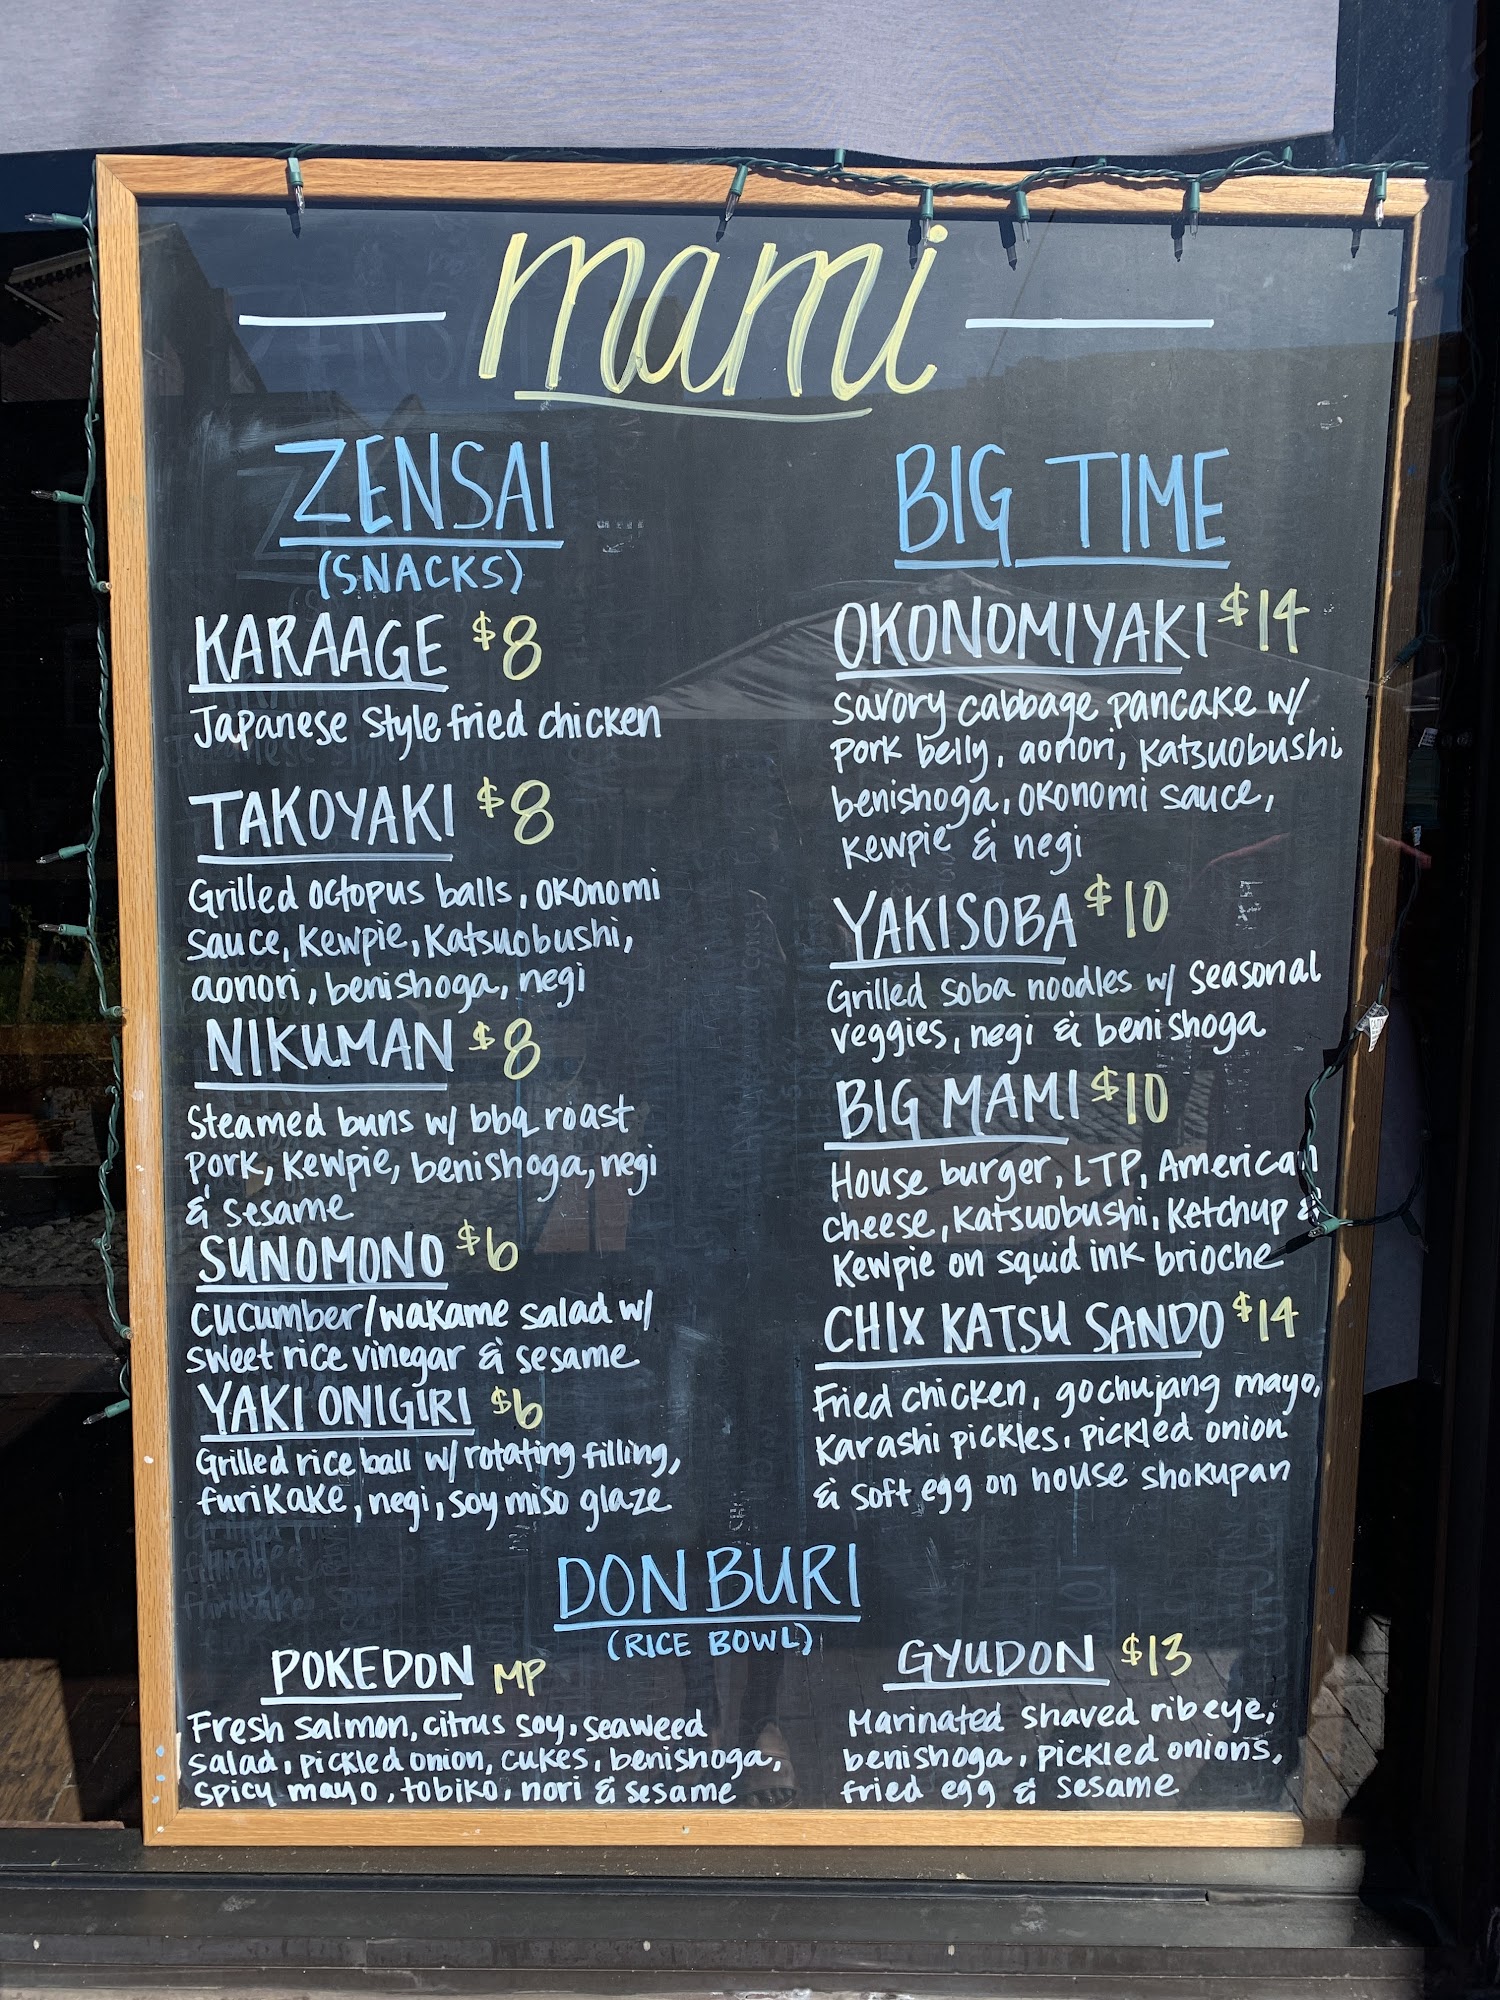 mami
ZENSAI
(SNACKS)
KARAAGE $8
Japanese style fried chicken
TAKOYAKI $8
Grilled octopus balls, okonomi
sauce, kewpie, katsuobushi,
aonori, benishoga, negi
NIKUMAN $8
Steamed buns w/ bbq roast
pork, kewpie, benishoga, negi
& sesame
SUNOMONO $6
cucumber/wakame salad w/
sweet rice vinegar & sesame
YAKI ONIGIRI $6
Grilled rice ball w/ rotating filling,
furikake, negi, soy miso glaze
BIG TIME
OKONOMIYAKI $14
savory cabbage pancake w/
pork belly, aonori, katsuobushi
benishoga, okonomi sauce,
kewpie & negi
YAKISOBA $10
Grilled soba noodles w/ seasonal
veggies, negi & benishoga
BIG MAMI $10
House burger, LTP, American
cheese, katsuobushi, ketchup &
kewpie on squid ink brioche
CHIX KATSU SANDO $14
Fried chicken, gochujang mayo,
karashi pickles, pickled onion
& soft egg on house shokupan
DONBURI
(RICE BOWL)
POKEDON MP
Fresh salmon, citrus soy, seaweed
salad, pickled onion, cukes, benishoga,
spicy mayo, tobiko, nori & sesame
GYUDON $13
Marinated shaved ribeye,
benishoga, pickled onions,
fried egg & sesame